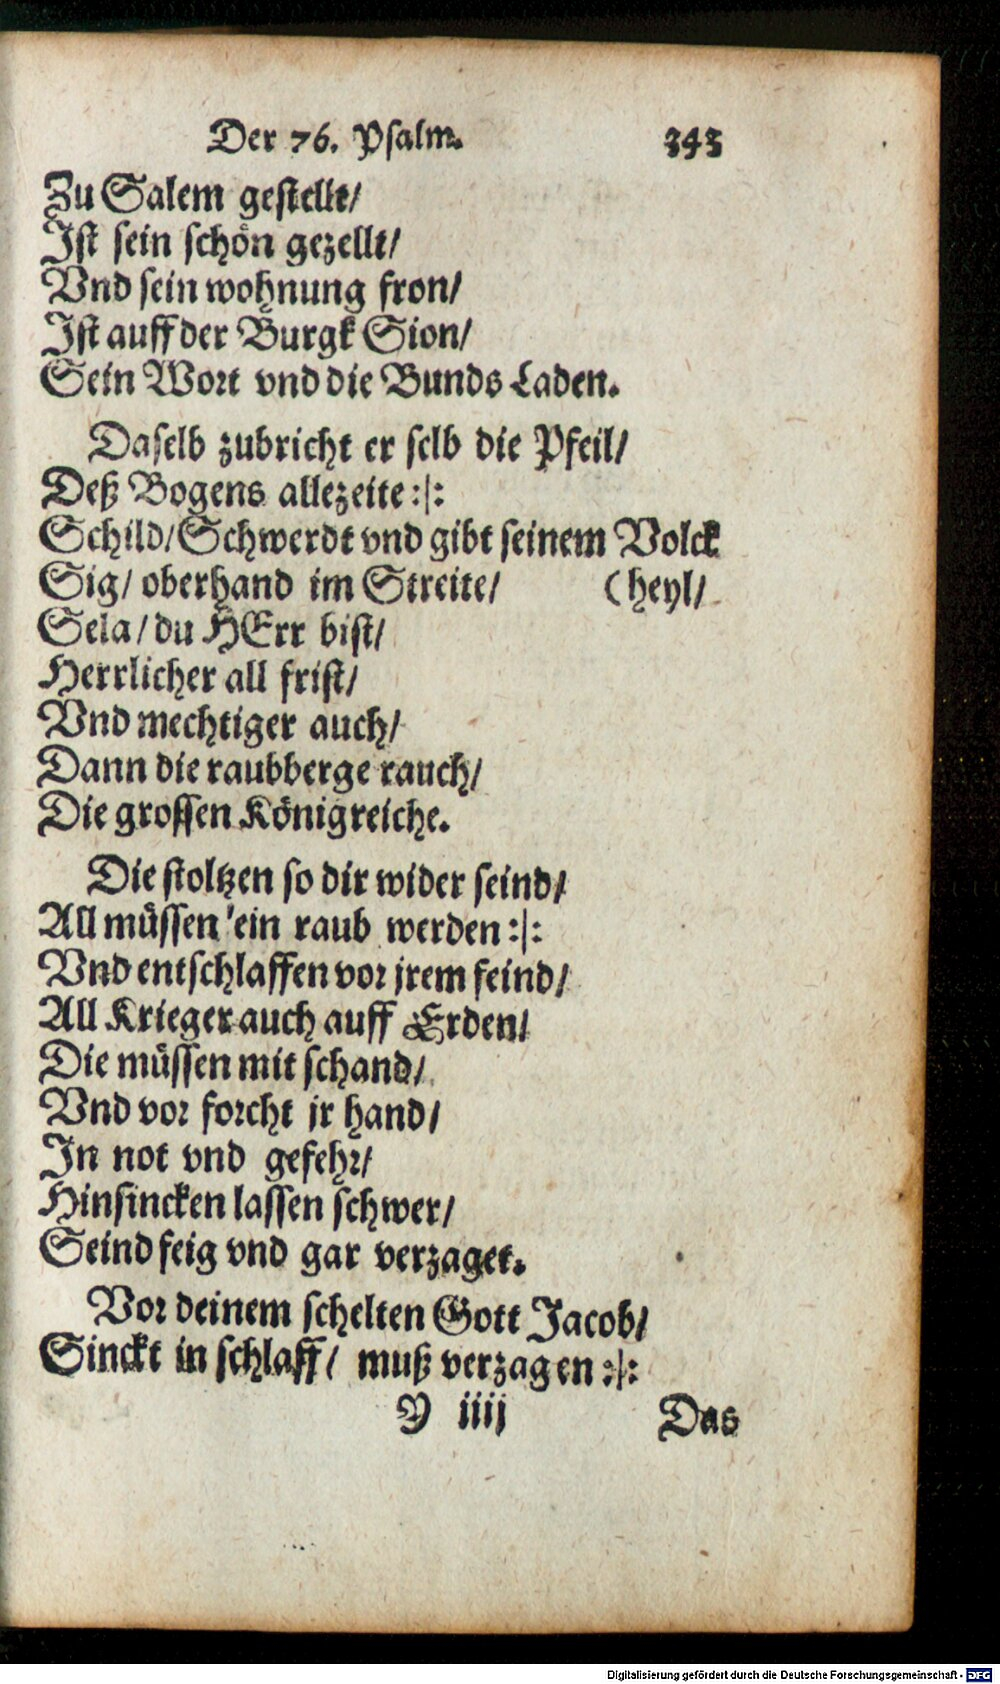 Der 76. Psalm. 343
Zu Salem gestellt/
Ist sein schön gezellt/
Vnd sein wohnung fron/
Ist auff der Burgk Sion/
Sein Wort vnd die Bunds Laden.
Daselb zubricht er selb die Pfeil/
Deß Bogens allezeite :|:
Schild/ Schwerdt vnd gibt seinem Volck
Sig/ oberhand im Streite/ (heyl/
Sela/ du HErr bist/
Herrlicher all frist/
Vnd mechtiger auch/
Dann die raubberge rauch/
Die grossen Königreiche.
Die stoltzen so dir wider seind/
All müssen ein raub werden :|:
Vnd entschlaffen vor jrem feind/
All Krieger auch auff Erden/
Die müssen mit schand/
Vnd vor forcht jr hand/
In not vnd gefehr/
Hinsincken lassen schwer/
Seind feig vnd gar verzaget.
Vor deinem schelten Gott Jacob/
Sinckt in schlaff/ muß verzagen :|:
Y iiij Das
Digitalisierung gefördert durch die Deutsche Forschungsgemeinschaft - DFG